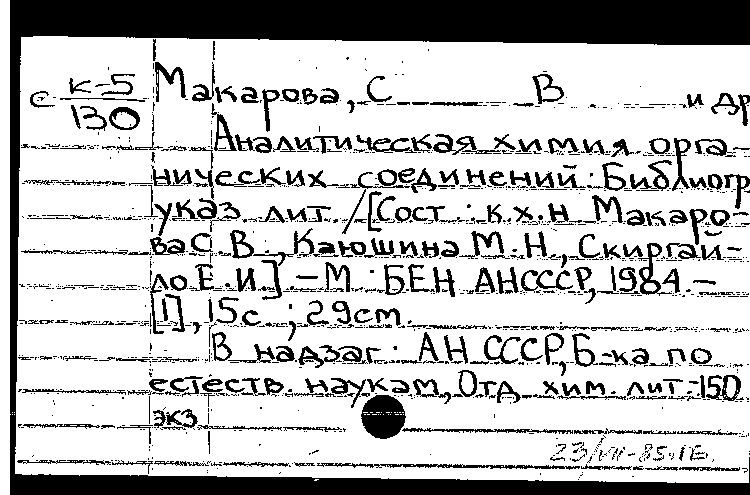 с К-5/130
Макарова, С В и др
Аналитическая химия орга-
нических соединений: Библиогр
указ. лит. /[Сост.: к.х.н Макаро-
ва С. В., Каюшина М.Н., Скиргай-
ло Е.И.] – М.: БЕН АНСССР, 1984. –
[1], 15с ; 29cm.
В надзаг: АН СССР, Б-ка по
естеств. наукам, Отд хим. лит.-150
экз
23/VII-85.